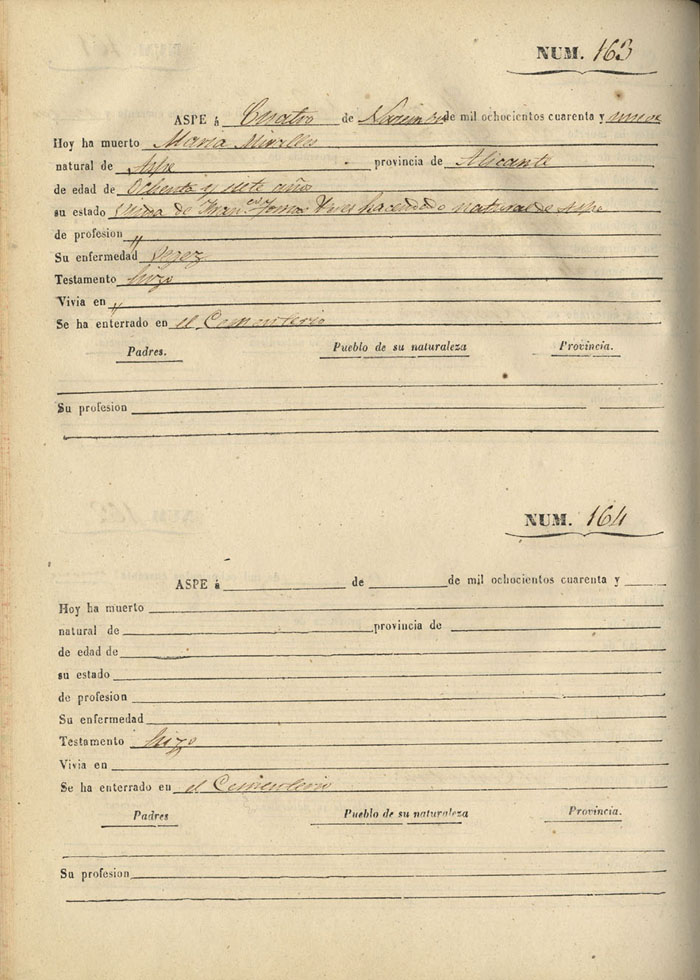 NUM. 163
ASPE á Cuatro de Noviem de mil ochocientos cuarenta y nueve
Hoy ha muerto Maria Miralles
natural de Aspe provincia de Alicante
de edad de Ochenta y siete años
su estado Viuda de Fran.co Tomas Vives hacendado natural de Aspe
de profesion "
Su enfermedad Vejez
Testamento hizo
Vivia en "
Se ha enterrado en el Cementerio
Padres. Pueblo de su naturaleza Provincia.
Su profesion
NUM. 164
ASPE á de de mil ochocientos cuarenta y
Hoy ha muerto
natural de provincia de
de edad de
su estado
de profesion
Su enfermedad
Testamento hizo
Vivia en
Se ha enterrado en el Cementerio
Padres Pueblo de su naturaleza Provincia.
Su profesion